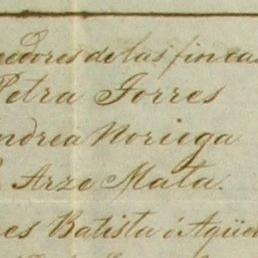 edores de las fincas
Petra Torres
ndrea Noriega
Arze Mata.
es Batista ó Agüe